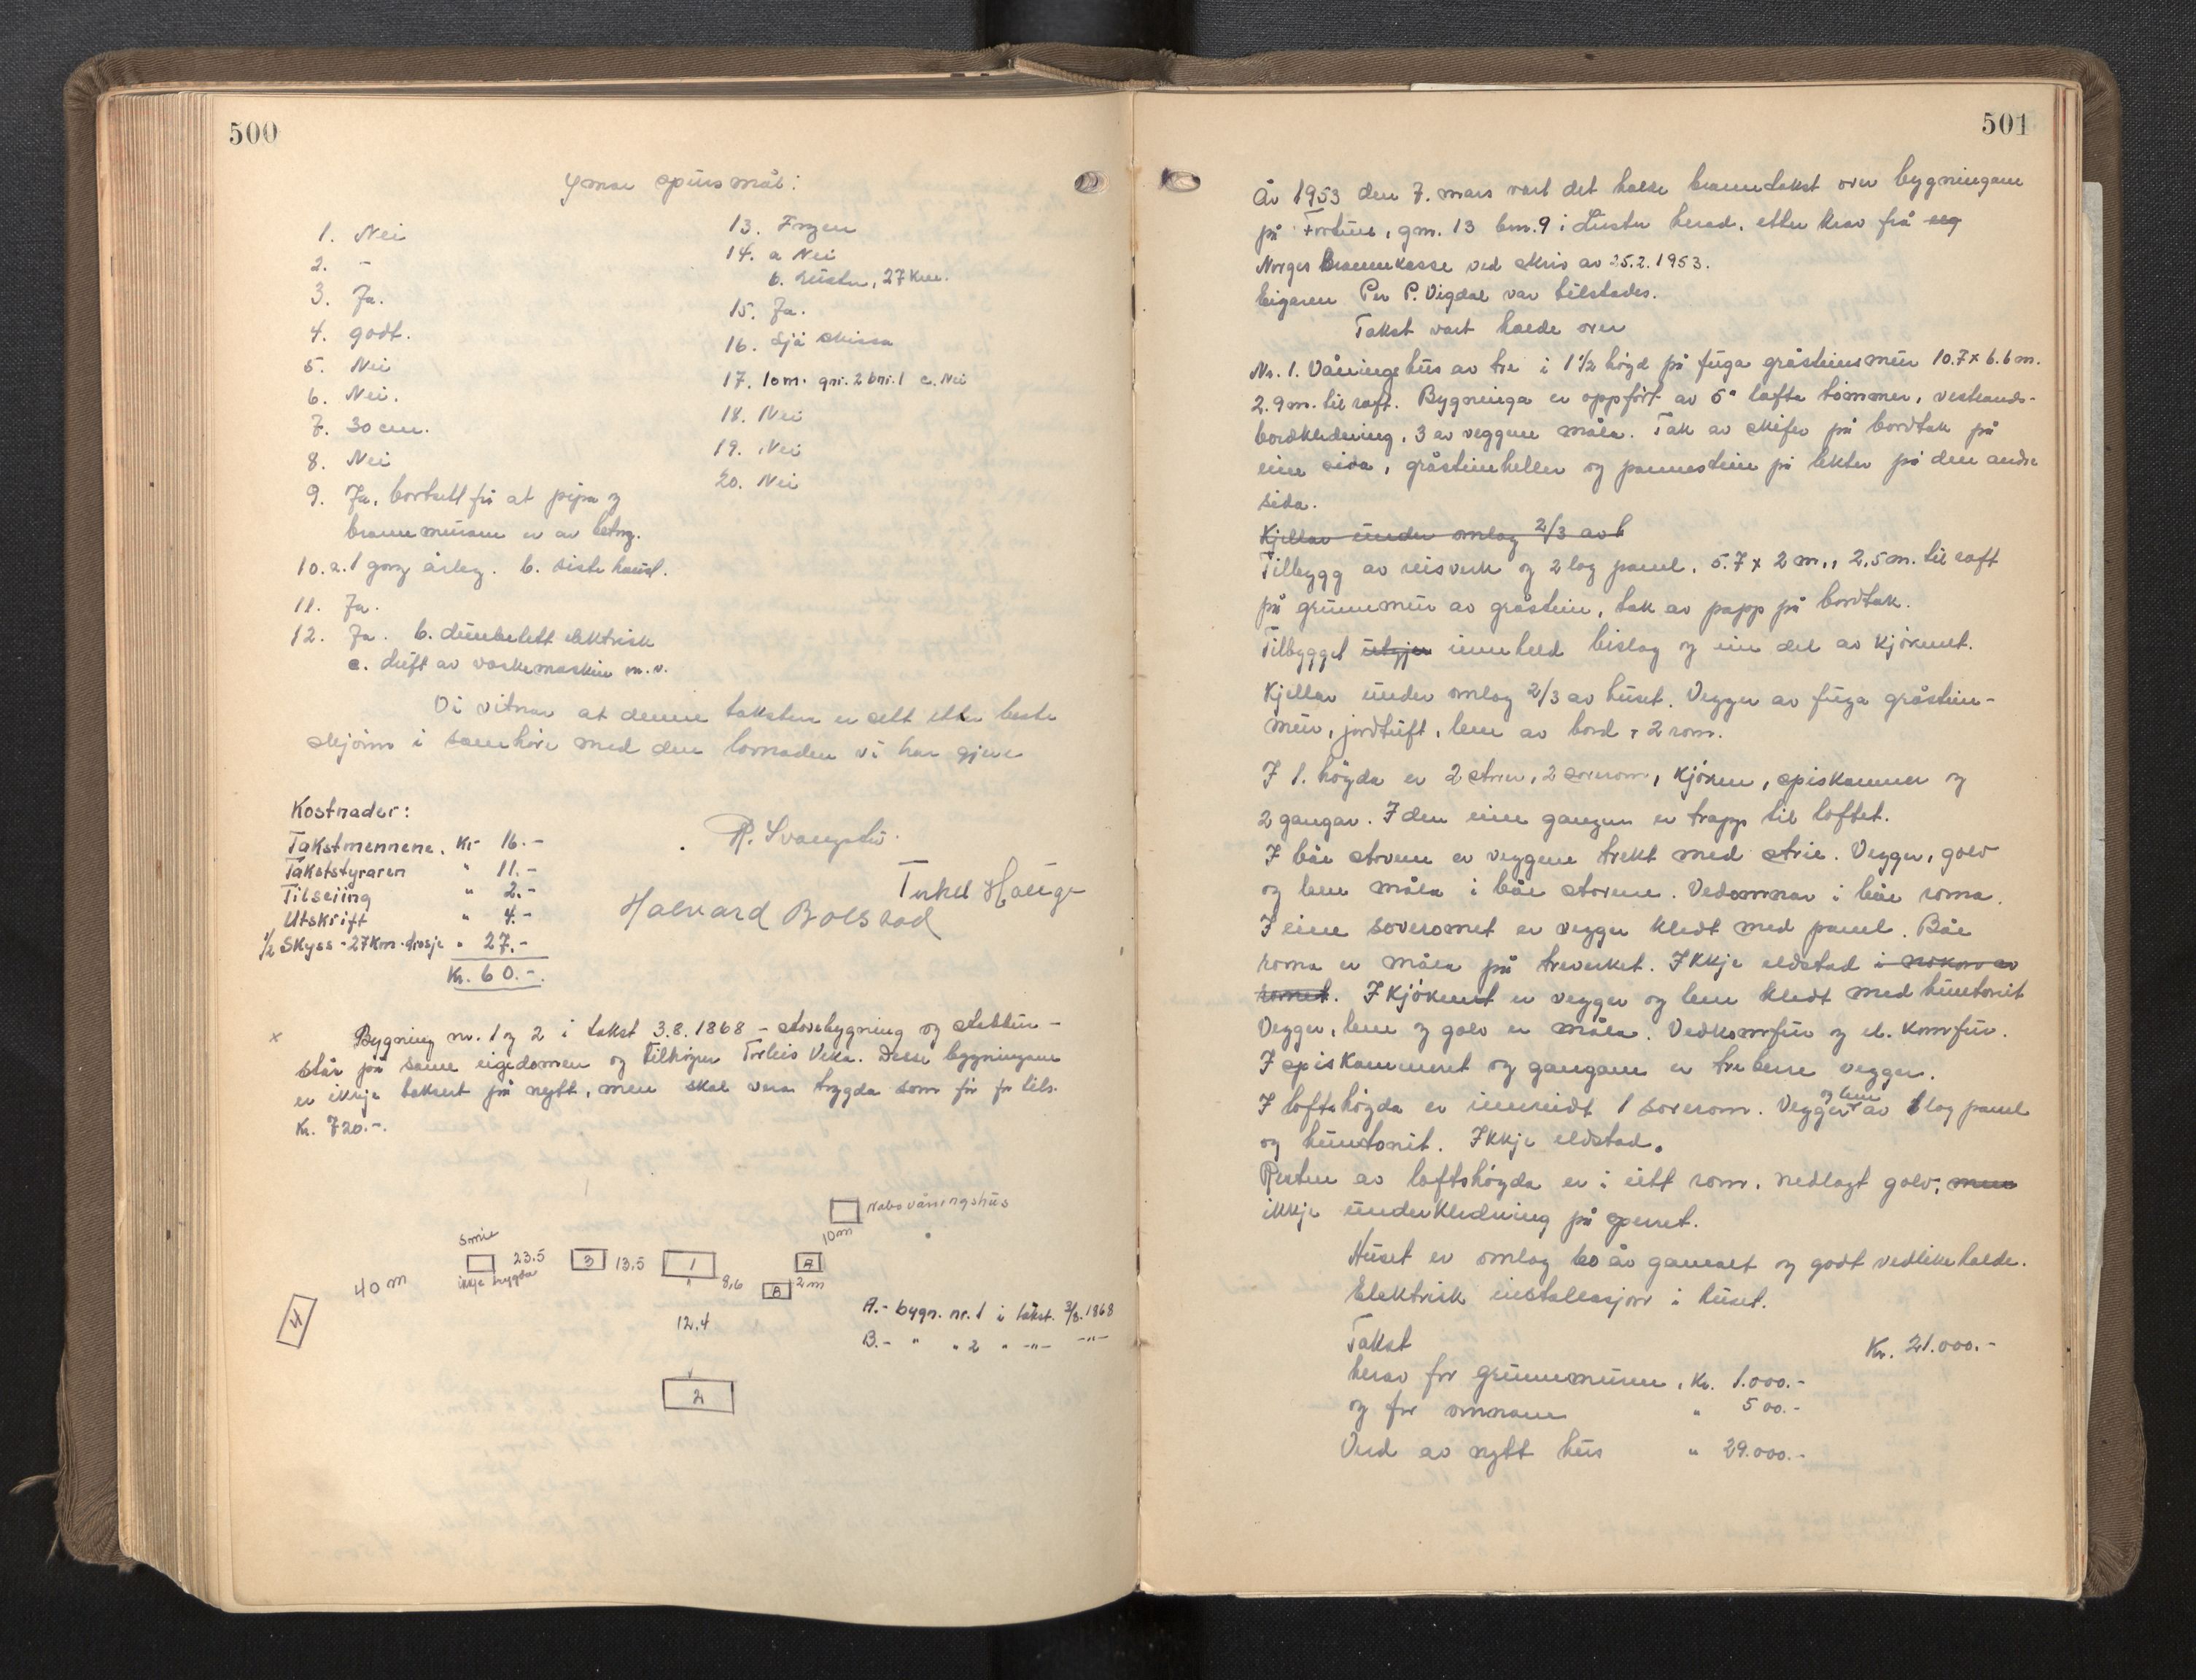 500
Ymse spursmål:
1. Nei
2. -
3. Ja.
4. godt.
5. Nei
6. Nei.
7. 30 cm.
8. Nei
9. Ja, bortsett frå at pipa og
brannmurane er av betong.
10. a. 1 gong årleg. b. siste haust.
11. Ja.
12. Ja. b. elektrisk
c. drift av vaskemaskin m.v.
13. Ingen
14. a Nei
b. Luster, 27 km.
15. Ja.
16. Sjå skissa
17. 10m. gnr. 2 bnr. 1 c. Nei
18. Nei
19. Nei
20. Nei
Vi vitnar at denne taksten er sett etter beste
skjönn i samhöve med den lovnaden vi har gjeve
Kostnader:
Takstmennene. Kr 16.-
Takststyraren " 11.-
Tilseiing " 2.-
Utskrift " 4.-
1/2 Skyss - 27 km. drosje " 27.-
Kr. 60.-
R.
Torkel Hauge
Halvard Bolstad
x Bygning nr. 1 og 2 i takst 3.8.1868 - stovebygning og stabbur -
står på same eigedomen og tilhöyrer Vika. Desse bygningane
er ikkje taksert på nytt, men skal vera trygda som för for tils.
Kr. 720.-.
Nabovåningshus
10m
smie
ikkje trygda
23.5
3
13.5
1
8,6
A
B
2m
40 m
4
12.4
2
A.- bygn. nr. 1 i takst. 3/8. 1868
B.- " " 2 " -"- -"-
501
År 1953 den 7. mars vart det halde branntakst over bygningane
på Fortun, gnr. 13 bnr. 9 i Luster herad, etter krav frå eig
Norges Brannkasse ved skriv av 25.2.1953.
Eigaren Per P. Vigdal var tilstades.
Takst vart halde over
Nr. 1. Våningehus av tre i 1 1/2 högd på fuga gråsteinsmur 10.7 x 6.6 m.
2.9 m. til raft. Bygninga er oppfört av 5" lafta tömmer, vestlands-
bordkledning, 3 av veggene måla. Tak av skifer på bordtak på
eine sida, gråsteinheller og pannestein på lekter på den andre
sida.
Kjellar under omlag 2/3 av h
Tilbygg av reisverk og 2 lag panel, 5.7 x 2 m., 2,5 m. til raft
på grunnmur av gråstein, tak av papp på bordtak.
Tilbygget utgjer inneheld bislag og ein del av kjökenet.
Kjellar under omlag 2/3 av huset. Vegger av fuga gråstein-
mur, jordtuft, lem av bord, 2 rom.
I 1. högda er 2 stover, 2 soverom, kjöken, spiskammer og
2 gangar. I den eine gangen er trapp til loftet.
I båe stovene er veggene trekt med strie. Vegger, golv
og lem måla i båe stovene. Vedomnar i båe roma.
I eine soveromet er vegger kledt med panel. Båe
roma er måla på treverket. Ikkje eldstad i nokon av
romet. I kjökenet er vegger og lem kledt med huntonit
Vegger, lem og golv er måla. Vedkomfur og el. komfur.
I spiskammeret og gangane er treberre vegger.
I loftshögda er innreidt 1 soverom. Vegger og lem av 1 lag panel
og huntonit. Ikkje eldstad.
Resten av loftshögda er i eitt rom, nedlagt golv, men
ikkje underkledning på sperret.
Huset er omlag 60 år gamalt og godt vedlikehalde.
Elektrisk installasjon i huset.
Takst Kr. 21.000.-
herav for grunnmuren, Kr. 1.000.-
og for omnane " 500.-
Verd av nytt hus " 29.000.-